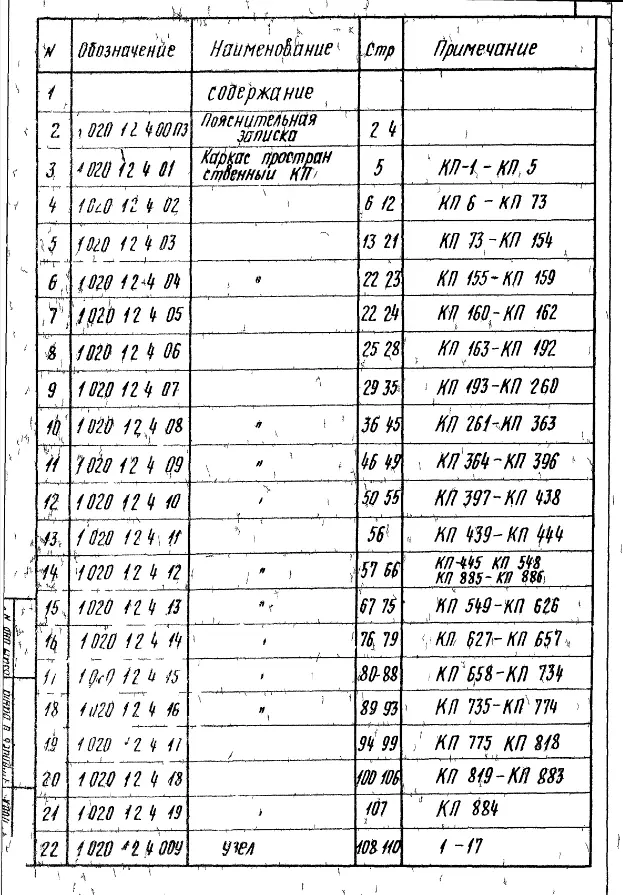 N Обозначение Наименование Стр Примечание
1 содержание
2 1 020 12 4 00ПЗ Пояснительная записка 2 4
3 1 020 12 4 01 Каркас простран
ственный КП 5 КП-1 - КП 5
4 1 020 12 4 02 6 12 КП 6 - КП 73
5 1 020 12 4 03 13 21 КП 73 - КП 154
6 1 020 12 4 04 " 22 23 КП 155 - КП 159
7 1 020 12 4 05 22 24 КП 160 - КП 162
8 1 020 12 4 06 25 28 КП 163 - КП 192
9 1 020 12 4 07 29 35 КП 193 - КП 260
10 1 020 12 4 08 " 36 45 КП 261 - КП 363
11 1 020 12 4 09 " 46 49 КП 364 - КП 396
12 1 020 12 4 10 50 55 КП 397 - КП 438
13 1 020 12 4 11 56 КП 439 - КП 444
14 1 020 12 4 12 " 57 66 КП-445 КП 548
КП 885 - КП 886
15 1 020 12 4 13 " 67 75 КП 549 - КП 626
16 1 020 12 4 14 76 79 КП 627 - КП 657
17 1 020 12 4 15 80-88 КП 658 - КП 734
18 1 020 12 4 16 " 89 93 КП 735 - КП 774
19 1 020 12 4 17 94 99 КП 775 КП 818
20 1 020 12 4 18 100 106 КП 819 - КП 883
21 1 020 12 4 19 107 КП 884
22 1 020 12 4 00У узел 108 110 1 - 17